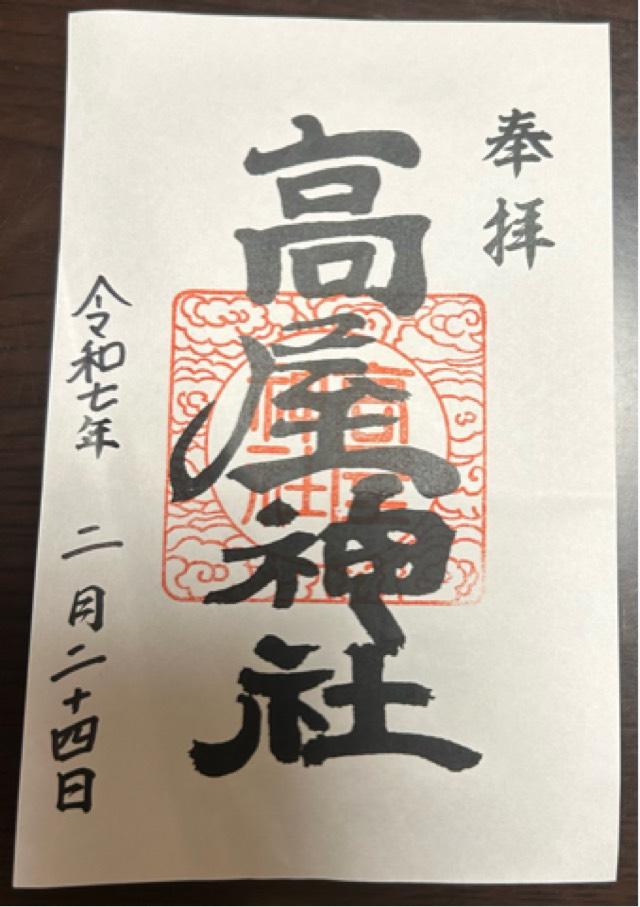 奉拝
高屋神社
高屋神社
令和七年 二月二十四日